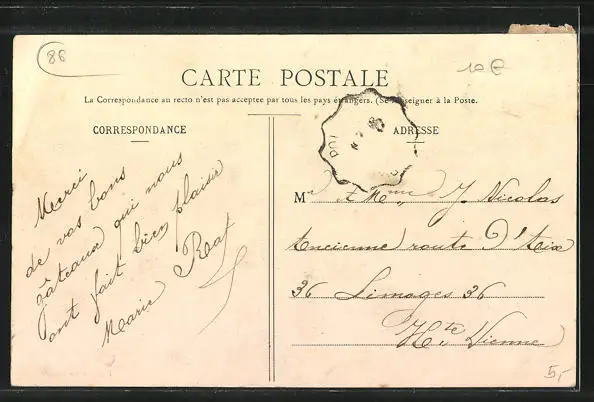 86
10€
CARTE POSTALE
La Correspondance au recto n'est pas acceptee par tous les pays étrangers. (Se renseigner à la Poste.
CORRESPONDANCE
ADRESSE
Merci
de vos bons
gâteaux qui nous
ont fait bien plaisir
Marie
Mr & Mme J. Nicolas
Ancienne route d'Aixe
36 Limoges 36
Hte Vienne
5,-